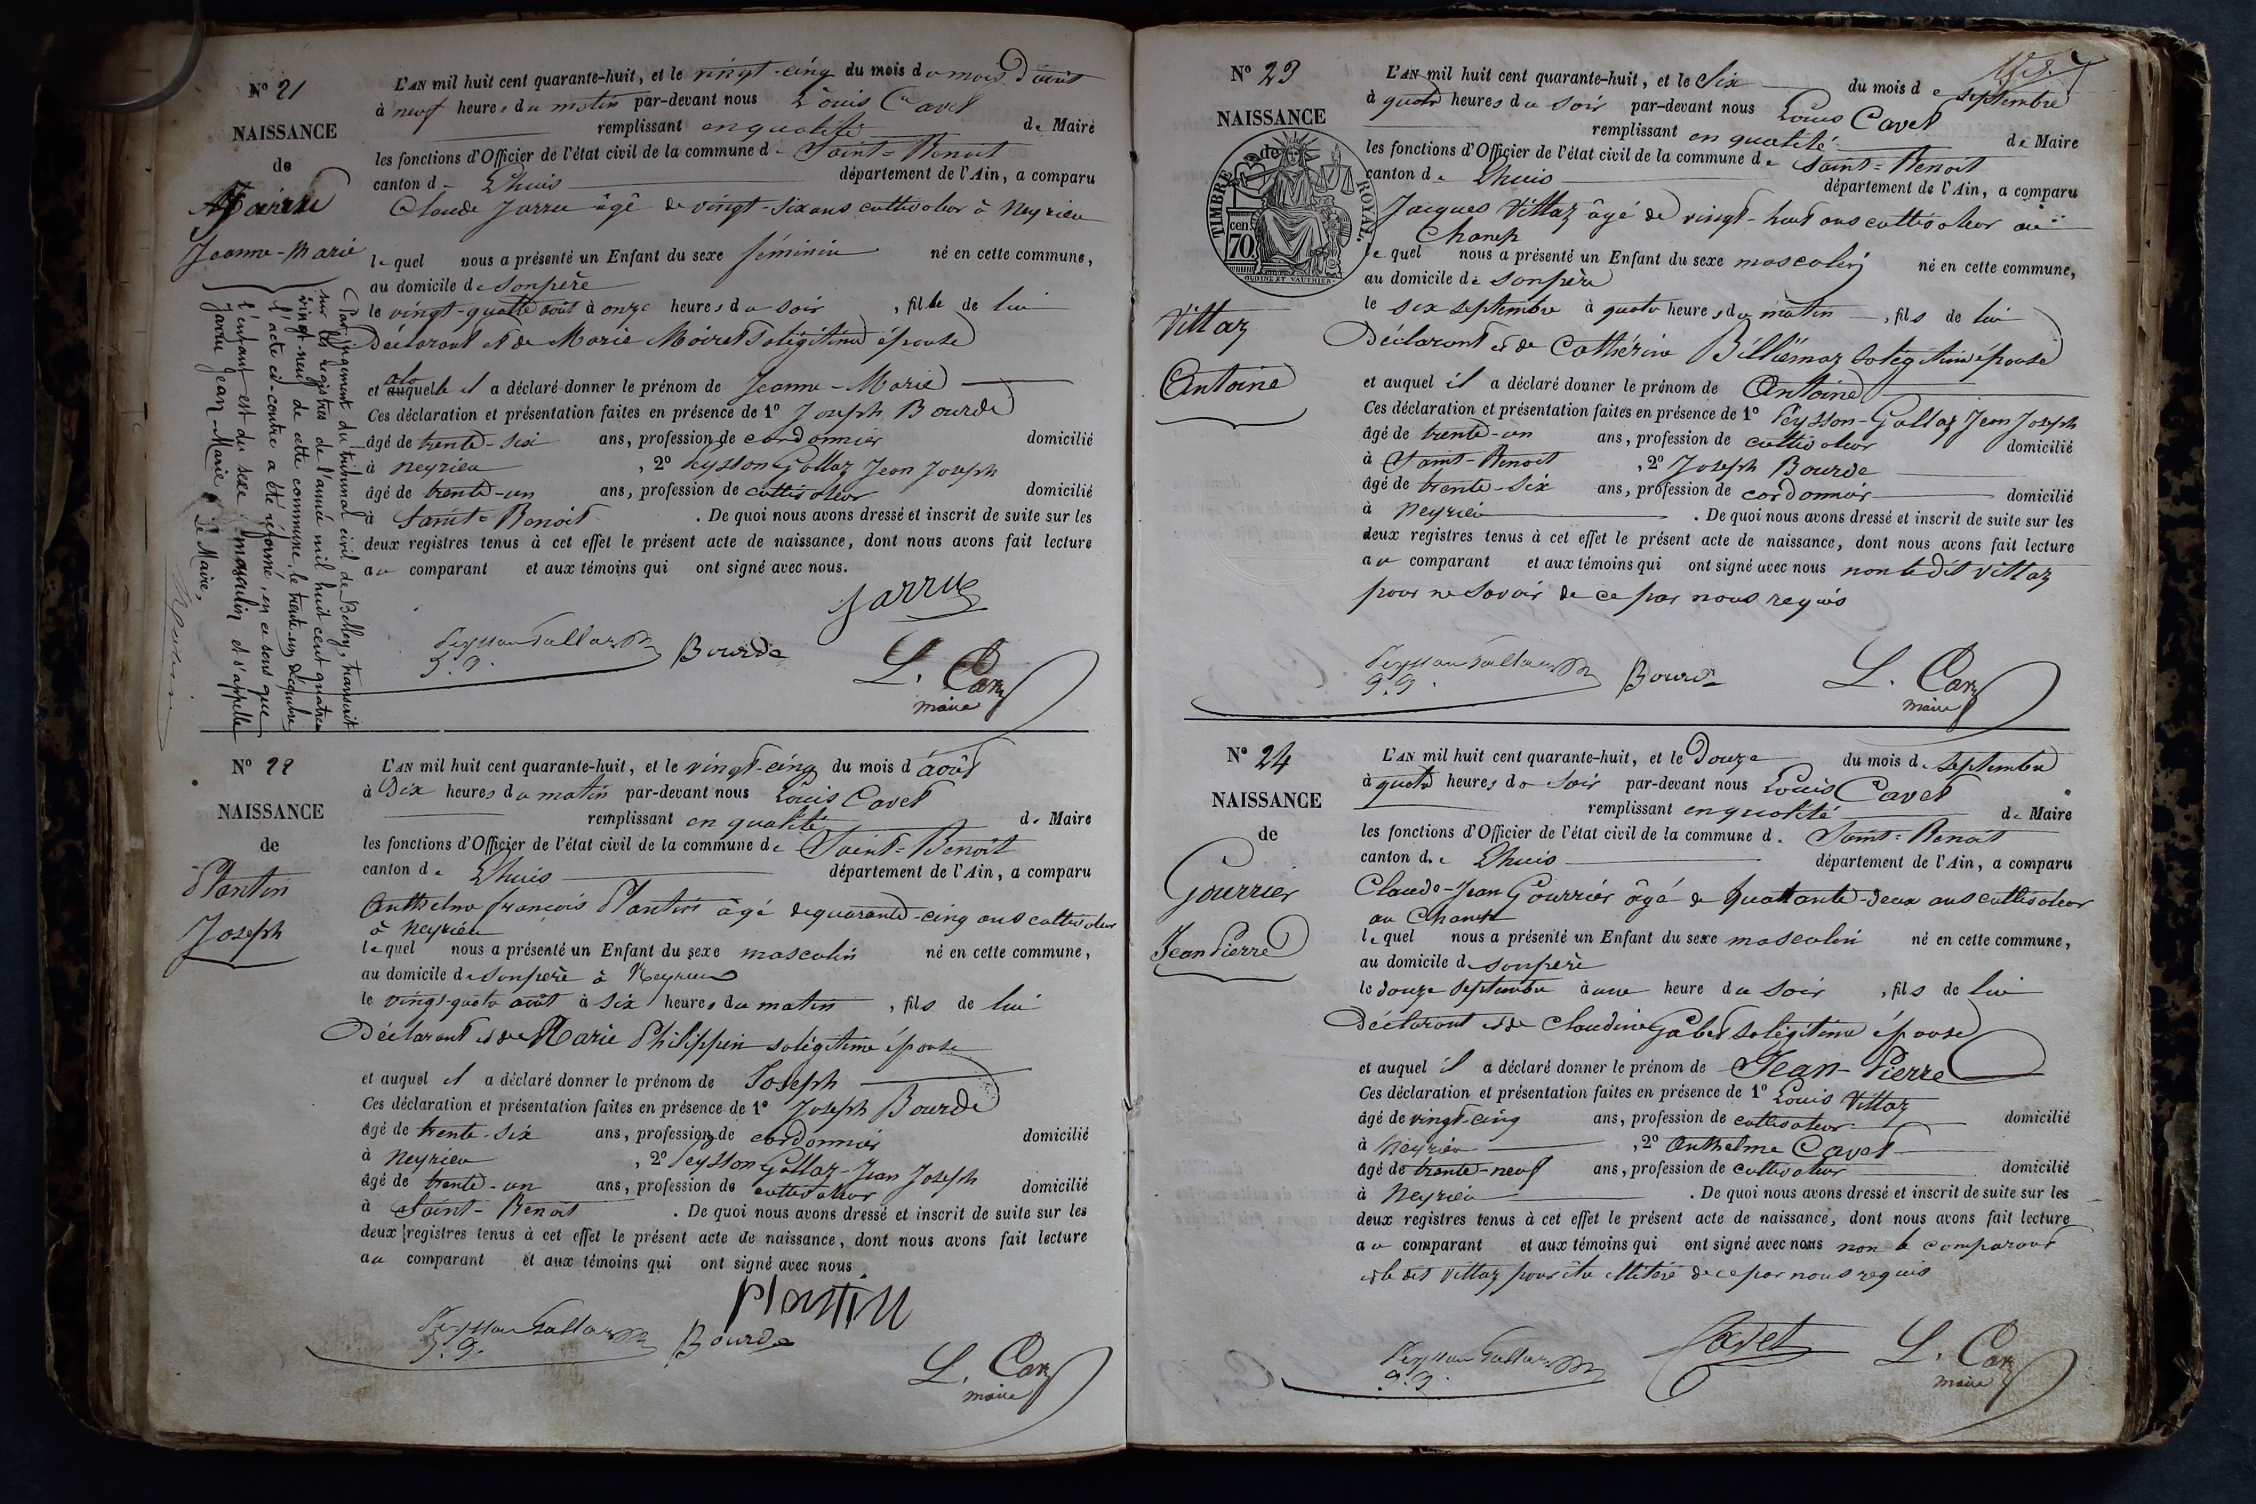 N° 21
NAISSANCE
de
Jarru
Jeanne-Marie
L'AN mil huit cent quarante-huit, et le vingt-cinq du mois du mois d'août
à neuf heures du matin par-devant nous Louis Cavet
remplissant en qualité de Maire
les fonctions d'Officier de l'état civil de la commune de Saint-Benoit
canton de Lhuis département de l'Ain, a comparu
Claude Jarru âgé de vingt-six ans cultivateur à Neyrieu
lequel nous a présenté un Enfant du sexe féminin né en cette commune,
au domicile de son père
le vingt-quatre août à onze heures du soir, fille de lui
Déclarant et de Marie Moiret sa légitime épouse
et à laquelle il a déclaré donner le prénom de Jeanne-Marie
Ces déclaration et présentation faites en présence de 1° Joseph Bourde
âgé de trente-six ans, profession de cordonnier domicilié
à Neyrieu, 2° Peysson Gallaz Jean Joseph
âgé de trente-un ans, profession de cultivateur domicilié
à Saint-Benoit. De quoi nous avons dressé et inscrit de suite sur les
deux registres tenus à cet effet le présent acte de naissance, dont nous avons fait lecture
au comparant et aux témoins qui ont signé avec nous.
Jarru
Peysson Gallaz
J. J.
Bourde
L. Cavet
maire
Par jugement du tribunal civil de Belley, transcrit
sur les registres de l'année mil huit cent quatre
vingt-neuf de cette commune, le trente-un décembre
l'acte ci-contre a été réformé, en ce sens que
l'enfant est du sexe masculin et s'appelle
Jarru Jean-Marie. Le Maire,
N° 22
NAISSANCE
de
Plantin
Joseph
L'AN mil huit cent quarante-huit, et le vingt-cinq du mois d'août
à Dix heures du matin par-devant nous Louis Cavet
remplissant en qualité de Maire
les fonctions d'Officier de l'état civil de la commune de Saint-Benoit
canton de Lhuis département de l'Ain, a comparu
Anthelme françois Plantin âgé de quarante-cinq ans cultivateur
à Neyrieu
lequel nous a présenté un Enfant du sexe masculin né en cette commune,
au domicile de son père à Neyrieu
le vingt-quatre août à six heures du matin, fils de lui
Déclarant et de Marie Philippin sa légitime épouse
et auquel il a déclaré donner le prénom de Joseph
Ces déclaration et présentation faites en présence de 1° Joseph Bourde
âgé de trente-six ans, profession de cordonnier domicilié
à Neyrieu, 2° Peysson Gallaz-Jean Joseph
âgé de trente-un ans, profession de cultivateur domicilié
à Saint-Benoit. De quoi nous avons dressé et inscrit de suite sur les
deux registres tenus à cet effet le présent acte de naissance, dont nous avons fait lecture
au comparant et aux témoins qui ont signé avec nous
Plantin
Peysson Gallaz
J. J.
Bourde
L. Cavet
maire
N° 23
NAISSANCE
de
TIMBRE ROYAL.
70 cen
Villaz
Antoine
L'AN mil huit cent quarante-huit, et le Six du mois de septembre
à quatre heures du soir par-devant nous Louis Cavet
remplissant en qualité de Maire
les fonctions d'Officier de l'état civil de la commune de Saint-Benoit
canton de Lhuis département de l'Ain, a comparu
Jacques Villaz âgé de vingt-huit ans cultivateur au
Chanet
lequel nous a présenté un Enfant du sexe masculin né en cette commune,
au domicile de son père
le six septembre à quatre heures du matin, fils de lui
Déclarant et de Cathérine Billiemaz sa légitime épouse
et auquel il a déclaré donner le prénom de Antoine
Ces déclaration et présentation faites en présence de 1° Peysson-Gallaz Jean Joseph
âgé de trente-un ans, profession de cultivateur domicilié
à Saint-Benoit, 2° Joseph Bourde
âgé de trente-six ans, profession de cordonnier domicilié
à Neyrieu. De quoi nous avons dressé et inscrit de suite sur les
deux registres tenus à cet effet le présent acte de naissance, dont nous avons fait lecture
au comparant et aux témoins qui ont signé avec nous non le dit Villaz
pour ne savoir de ce par nous requis
Peysson Gallaz
J. J.
Bourde
L. Cavet
maire
N° 24
NAISSANCE
de
Gourrier
Jean Pierre
L'AN mil huit cent quarante-huit, et le Douze du mois de septembre
à quatre heures du soir par-devant nous Louis Cavet
remplissant en qualité de Maire
les fonctions d'Officier de l'état civil de la commune de Saint-Benoit
canton de Lhuis département de l'Ain, a comparu
Claude-Jean Gourrier âgé de quarante-deux ans cultivateur
au Chanet
lequel nous a présenté un Enfant du sexe masculin né en cette commune,
au domicile de son père
le douze septembre à une heure du soir, fils de lui
Déclarant et de Claudine Gabet sa légitime épouse
et auquel il a déclaré donner le prénom de Jean-Pierre
Ces déclaration et présentation faites en présence de 1° Louis Villaz
âgé de vingt-cinq ans, profession de cultivateur domicilié
à Neyrieu, 2° Anthelme Cavet
âgé de trente-neuf ans, profession de cultivateur domicilié
à Neyrieu. De quoi nous avons dressé et inscrit de suite sur les
deux registres tenus à cet effet le présent acte de naissance, dont nous avons fait lecture
au comparant et aux témoins qui ont signé avec nous non le comparant
et le dit Villaz pour être illitéré de ce par nous requis
Peysson Gallaz
J. J.
Cavet
L. Cavet
maire